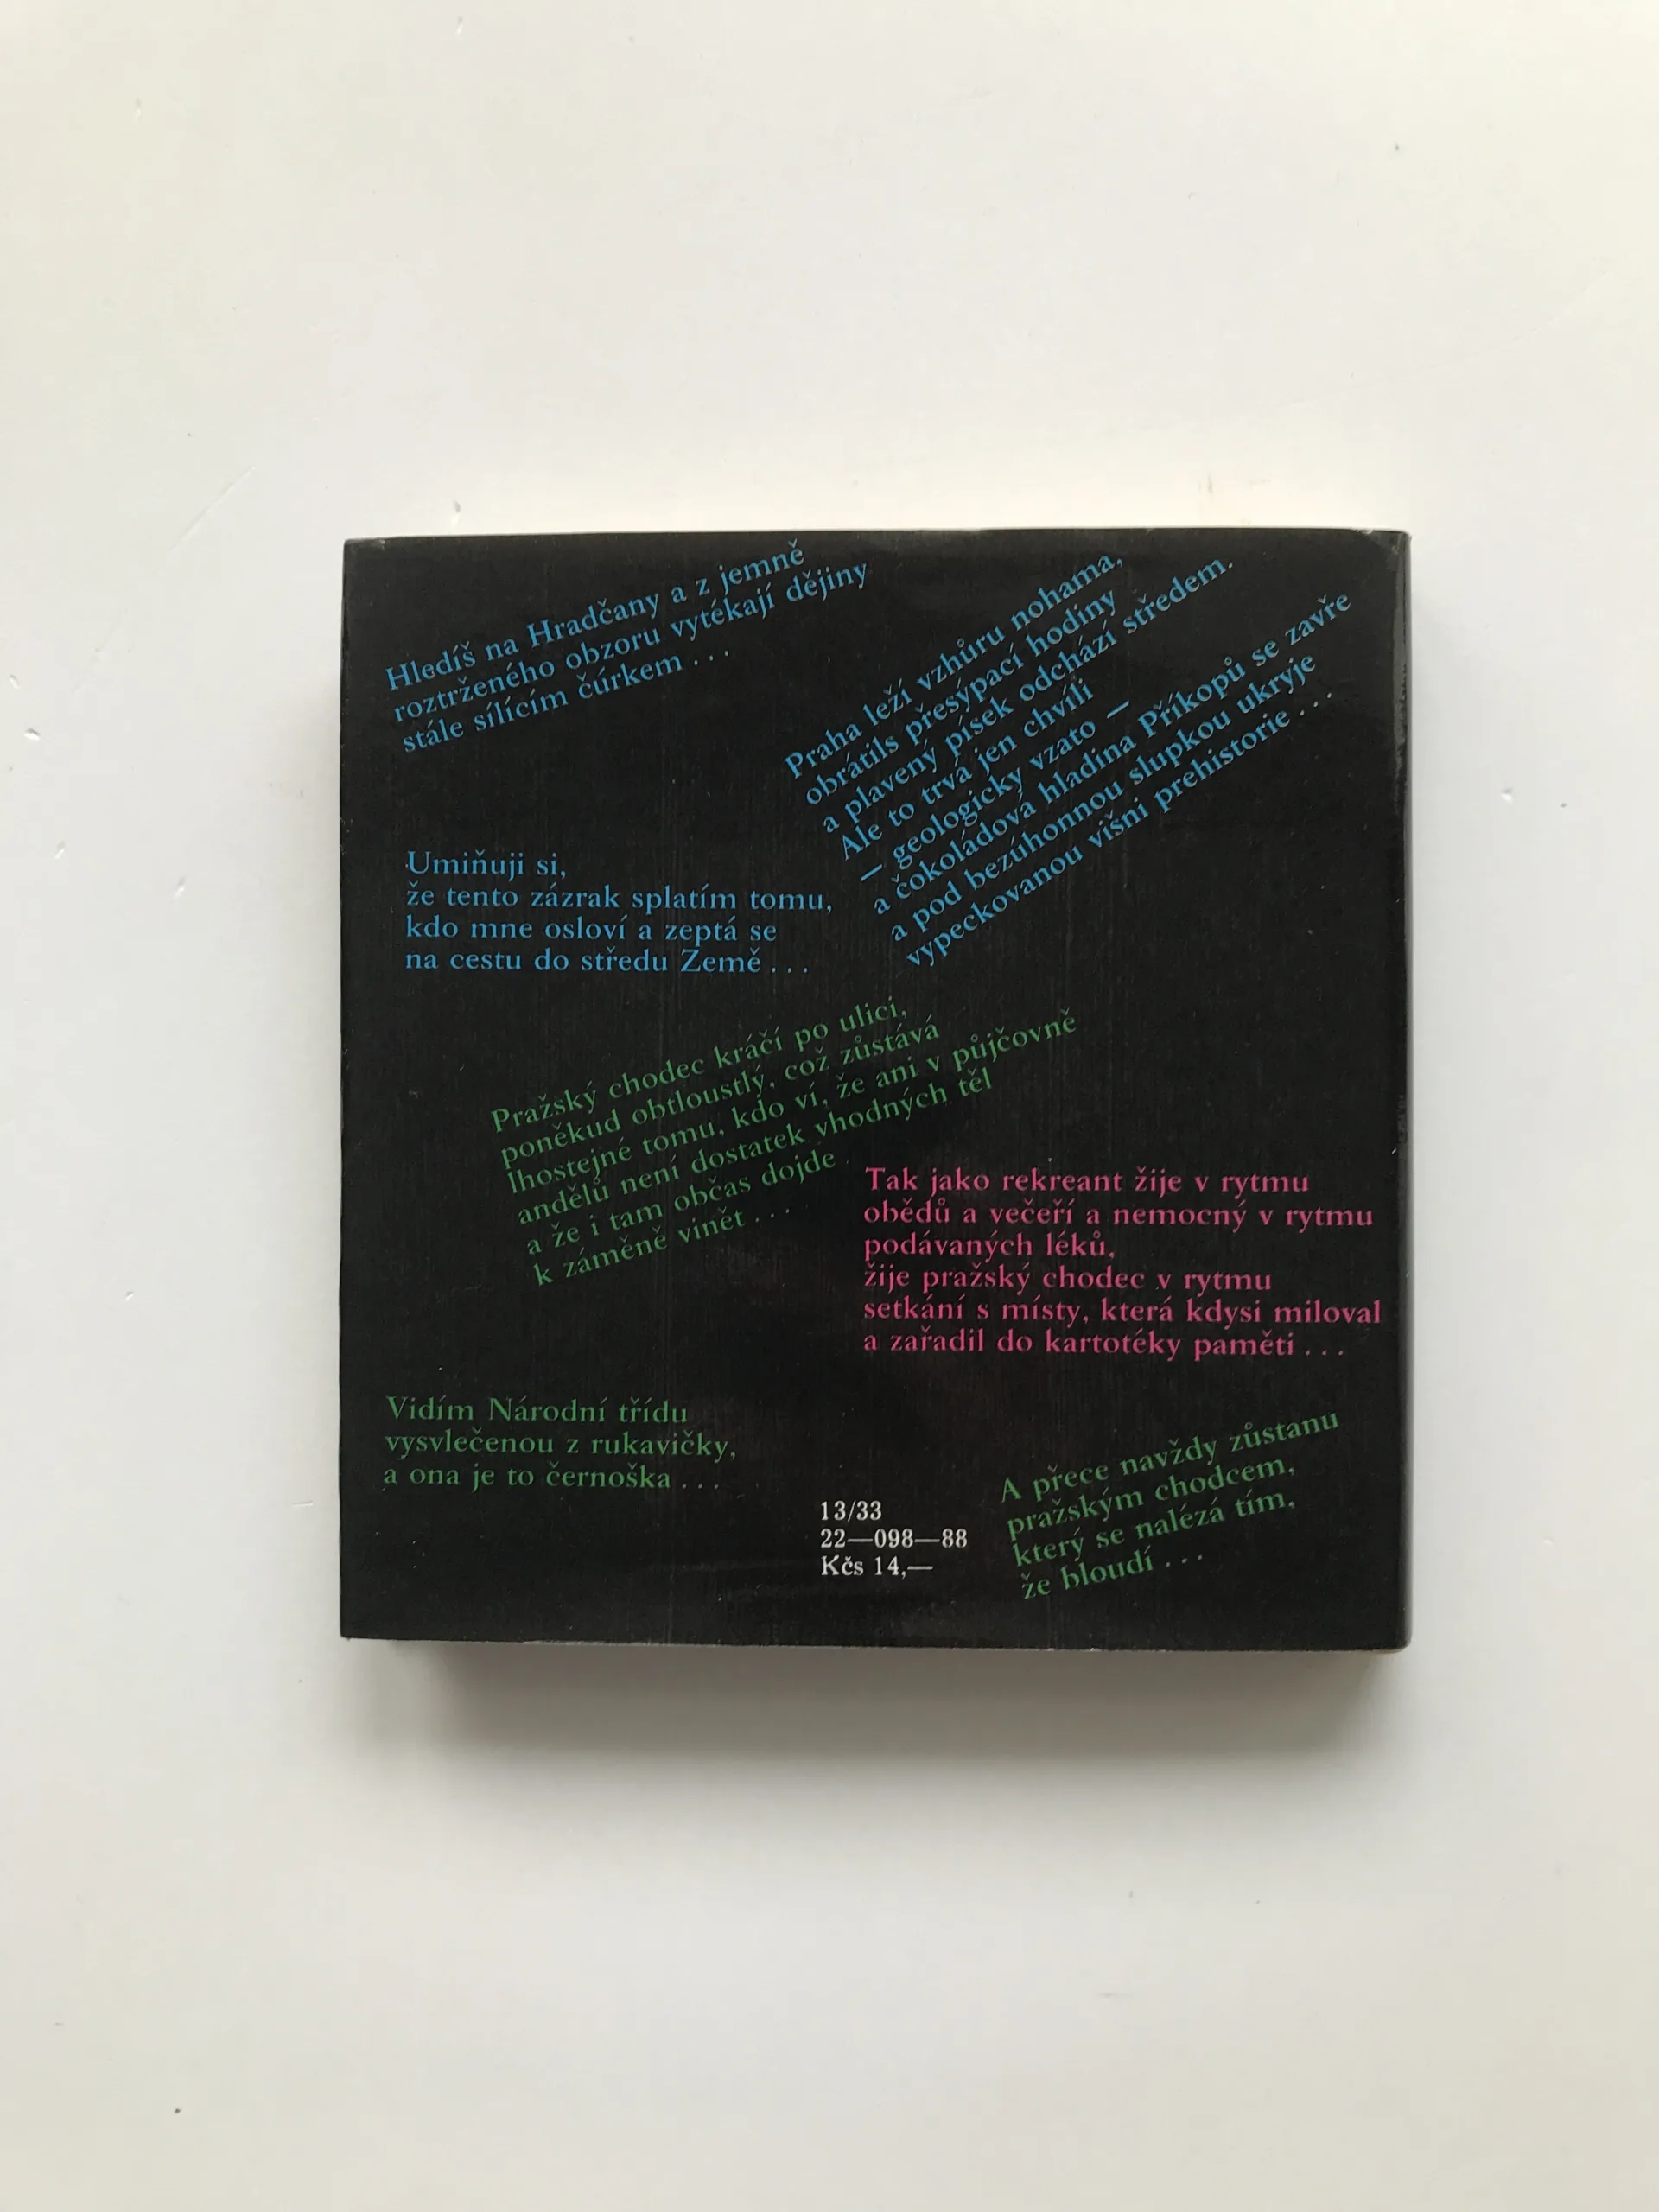 Hledíš na Hradčany a z jemně
roztrženého obzoru vytékají dějiny
stále sílícím čúrkem . . .
Praha leží vzhůru nohama,
obrátils přesýpací hodíny
a plavený písek odchází středem.
Ale to trvá jen chvíli
— geologicky vzato —
a čokoládová hladina Příkopů se zavře
a pod bezúhonnou slupkou ukryje
vypeckovanou višni prehistorie . . .
Umiňuji si,
že tento zázrak splatím tomu,
kdo mne osloví a zeptá se
na cestu do středu Země . . .
Pražský chodec kráčí po ulici,
poněkud obtloustlý, což zůstává
lhostejné tomu, kdo ví, že ani v půjčovně
andělů není dostatek vhodných těl
a že i tam občas dojde
k záměně vinět . . .
Tak jako rekreant žije v rytmu
obědů a večeří a nemocný v rytmu
podávaných léků,
žije pražský chodec v rytmu
setkání s místy, která kdysi miloval
a zařadil do kartotéky paměti . . .
Vidím Národní třídu
vysvlečenou z rukavičky,
a ona je to černoška . . .
A přece navždy zůstanu
pražským chodcem,
který se nalézá tím,
že bloudí . . .
13/33
22—098—88
Kčs 14,—